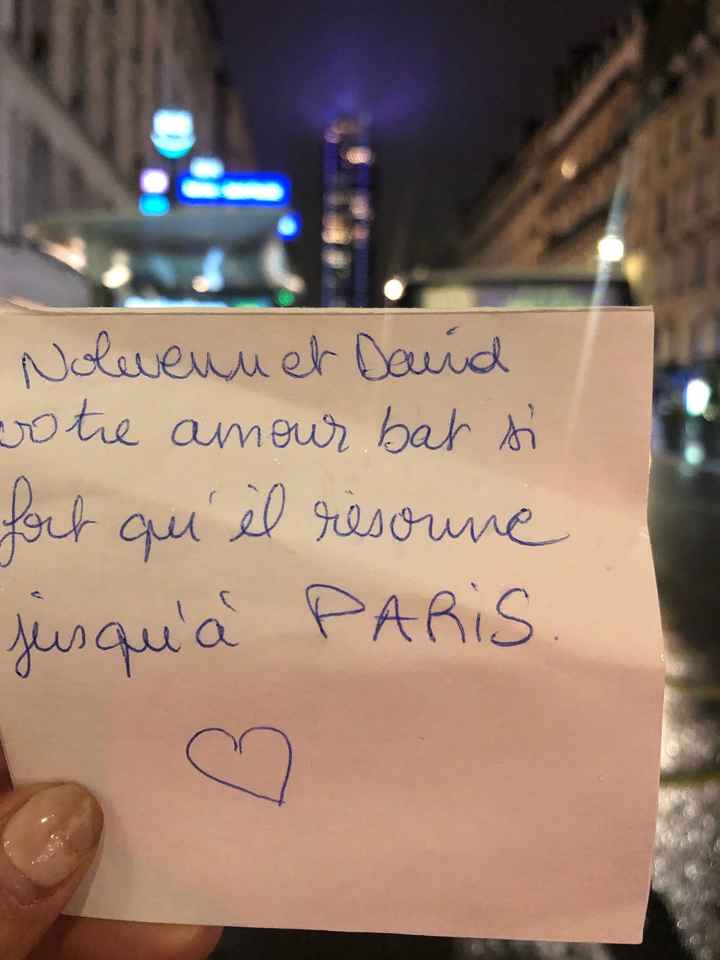 Nolwenn et David
votre amour bat si
fort qu'il résonne
jusqu'à PARiS.